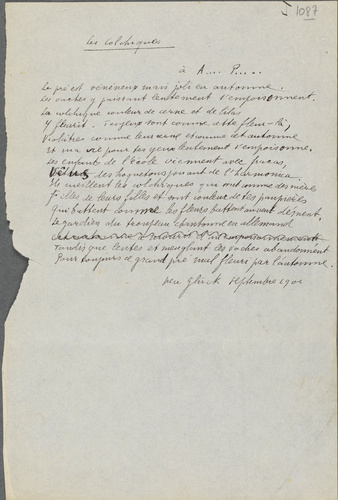 1087
Les Colchiques
à A.... P.....
Le pré est vénéneux mais joli en automne
Les vaches y paissant lentement s'empoisonnent.
La colchique couleur de cerne et de lilas
Y fleurit. Tes yeux sont comme cette fleur-là,
Violâtres comme leur cerne et comme cet automne
Et ma vie pour tes yeux lentement s'empoisonne.
Les enfants de l'école viennent avec fracas,
Vêtus des hoquetons jouant de l'harmonica
Ils cueillent les colchiques qui sont comme des mères
Filles de leurs filles et sont couleur de tes paupières
Qui battent comme les fleurs battent au vent dément.
Le gardien du troupeau chantonne en allemand
Tandis que lentes et meuglant les vaches abandonnent
Pour toujours ce grand pré mal fleuri par l'automne.
Neu Glück septembre 1901